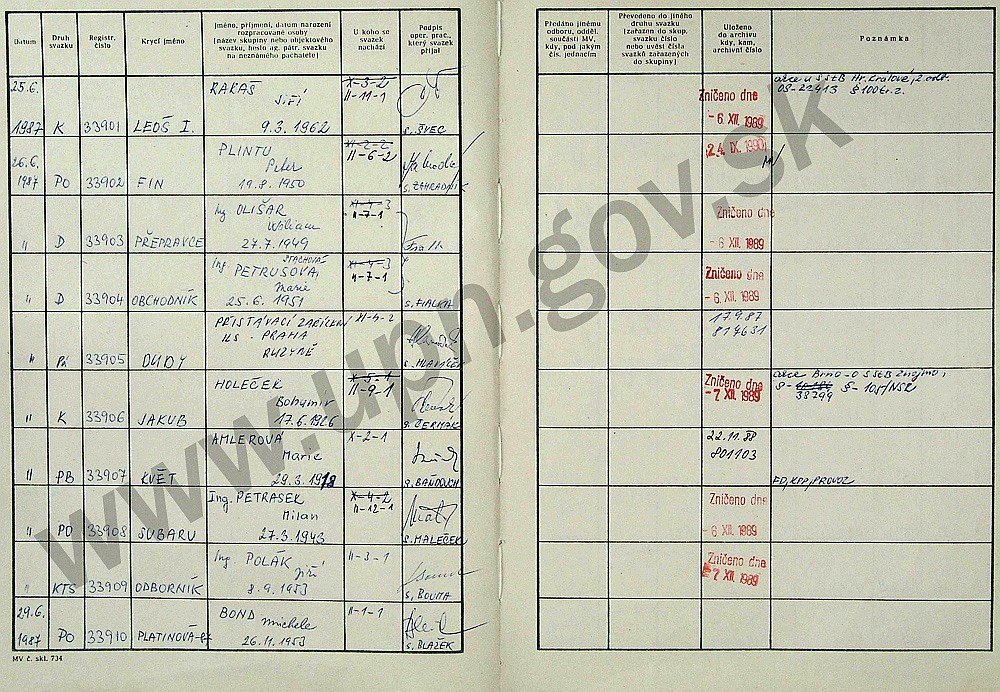 Datum
Druh svazku
Registr. číslo
Krycí jméno
Jméno, příjmení, datum narození
rozpracované osoby
(název skupiny nebo objektového
svazku, heslo ag. pátr. svazku
na neznámého pachatele)
U koho se
svazek
nachází
Podpis
oper. prac.,
který svazek
přijal
Předáno jinému
odboru, odděl.
součásti MV,
kdy, pod jakým
čís. jednacím
Převedeno do jiného
druhu svazku
(zařazen do skup.
svazku číslo
nebo uvésti čísla
svazků zařazených
do skupiny)
Uloženo
do archivu
kdy, kam,
archivní číslo
Poznámka
25.6.
1987 K 33901 LEOŠ I.
RAKAŠ
Jiří
9.3.1962
X-3-2
II-11-1
s. ŠVEC
Zničeno dne
- 6. XII. 1989
akce u S StB Hr. Králové, 2. odb.
26.6.
1987 PO 33902 FIN
PLINTU
Peter
19.8.1950
XI-2-2
II-6-2
s. ZAHRADNÍK
24. IX. 1990
" D 33903 PŘEPRAVCE
Ing. OLIŠAR
Wiliam
27.7.1949
XI-4-3
II-7-1
Zničeno dne
- 6. XII. 1989
" D 33904 OBCHODNÍK
STACHOVÁ
Ing. PETRUSOVÁ
Marie
25.6.1951
XI-4-3
II-7-1
s. FIALKA
Zničeno dne
- 6. XII. 1989
" 33905 DUDY
PŘISTÁVACÍ ZAŘÍZENÍ
ILS - PRAHA
RUZYNĚ
XI-4-2
17.9.87
814631
" K 33906 JAKUB
HOLEČEK
Bohumír
17.6.1926
X-5-1
II-9-1
s. ČERMÁK
Zničeno dne
- 7. XII. 1989
akce Brno - O S StB Znojmo,
38299
" PB 33907 KVĚT
AMLEROVÁ
Marie
29.3.1918
X-2-1
s. BANDOUCH
22.11.88
801103
ED, KPP, PROVOZ
" PO 33908 SUBARU
Ing. PETRASEK
Milan
27.3.1943
X-4-2
II-12-1
s. MALEČEK
Zničeno dne
- 6. XII. 1989
" KTS 33909 ODBORNÍK
Ing. POLÁK
Jiří
8.9.1953
II-3-1
s. BOUMA
Zničeno dne
7. XII. 1989
29.6.
1987 PO 33910 PLATINOVÁ
BOND Michele
26.11.1953
II-1-1
s. BLAŽEK
MV č. skl. 734
www.upn.gov.sk